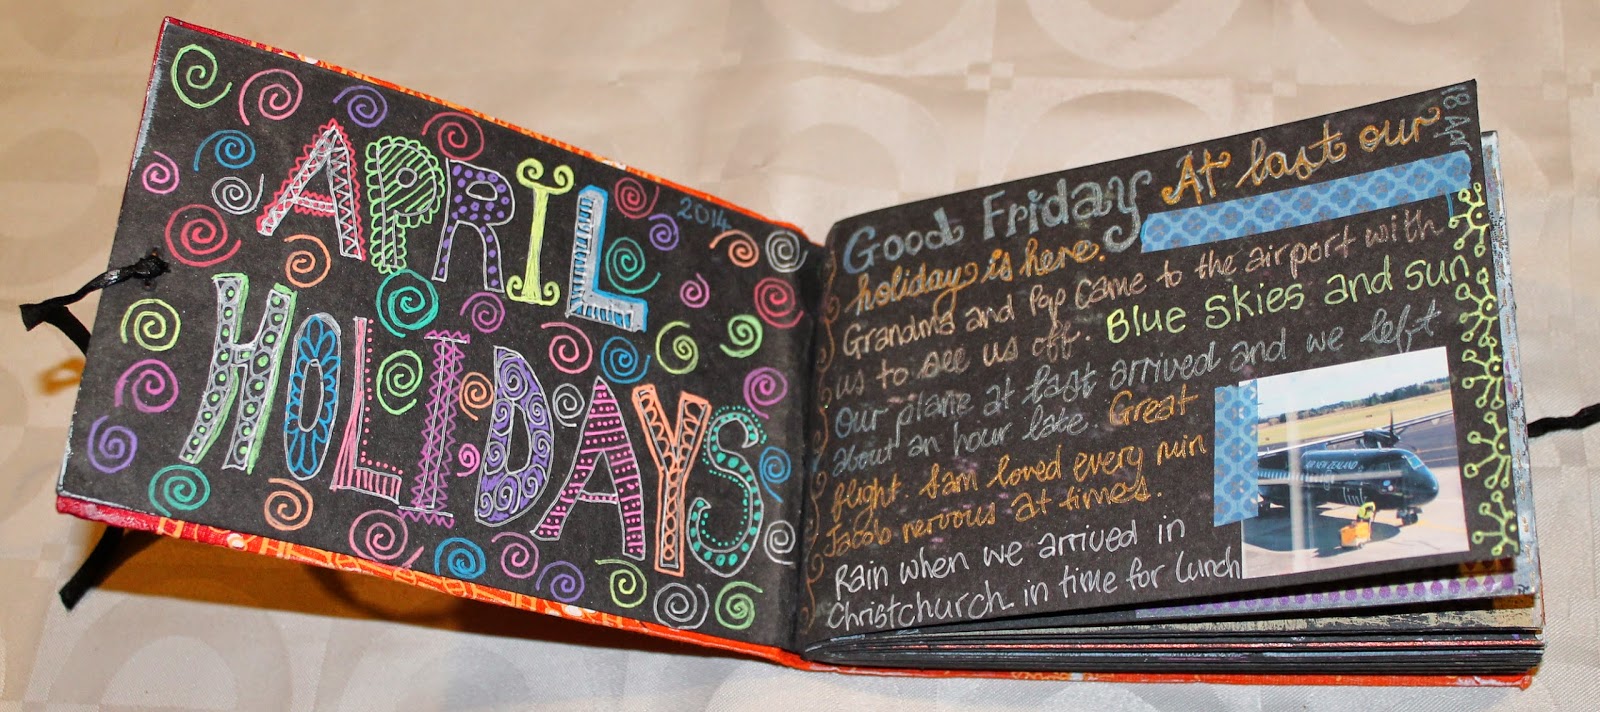 2014
APRIL
HOLIDAYS
18 Apr
Good Friday At last our
holiday is here.
Grandma and Pop came to the airport with
us to see us off. Blue Skies and sun
our plane at last arrived and we left
about an hour late. Great
flight. Sam loved every min
Jacob nervous at times.
Rain when we arrived in
Christchurch in time for lunch
AIR NEW ZEALAND